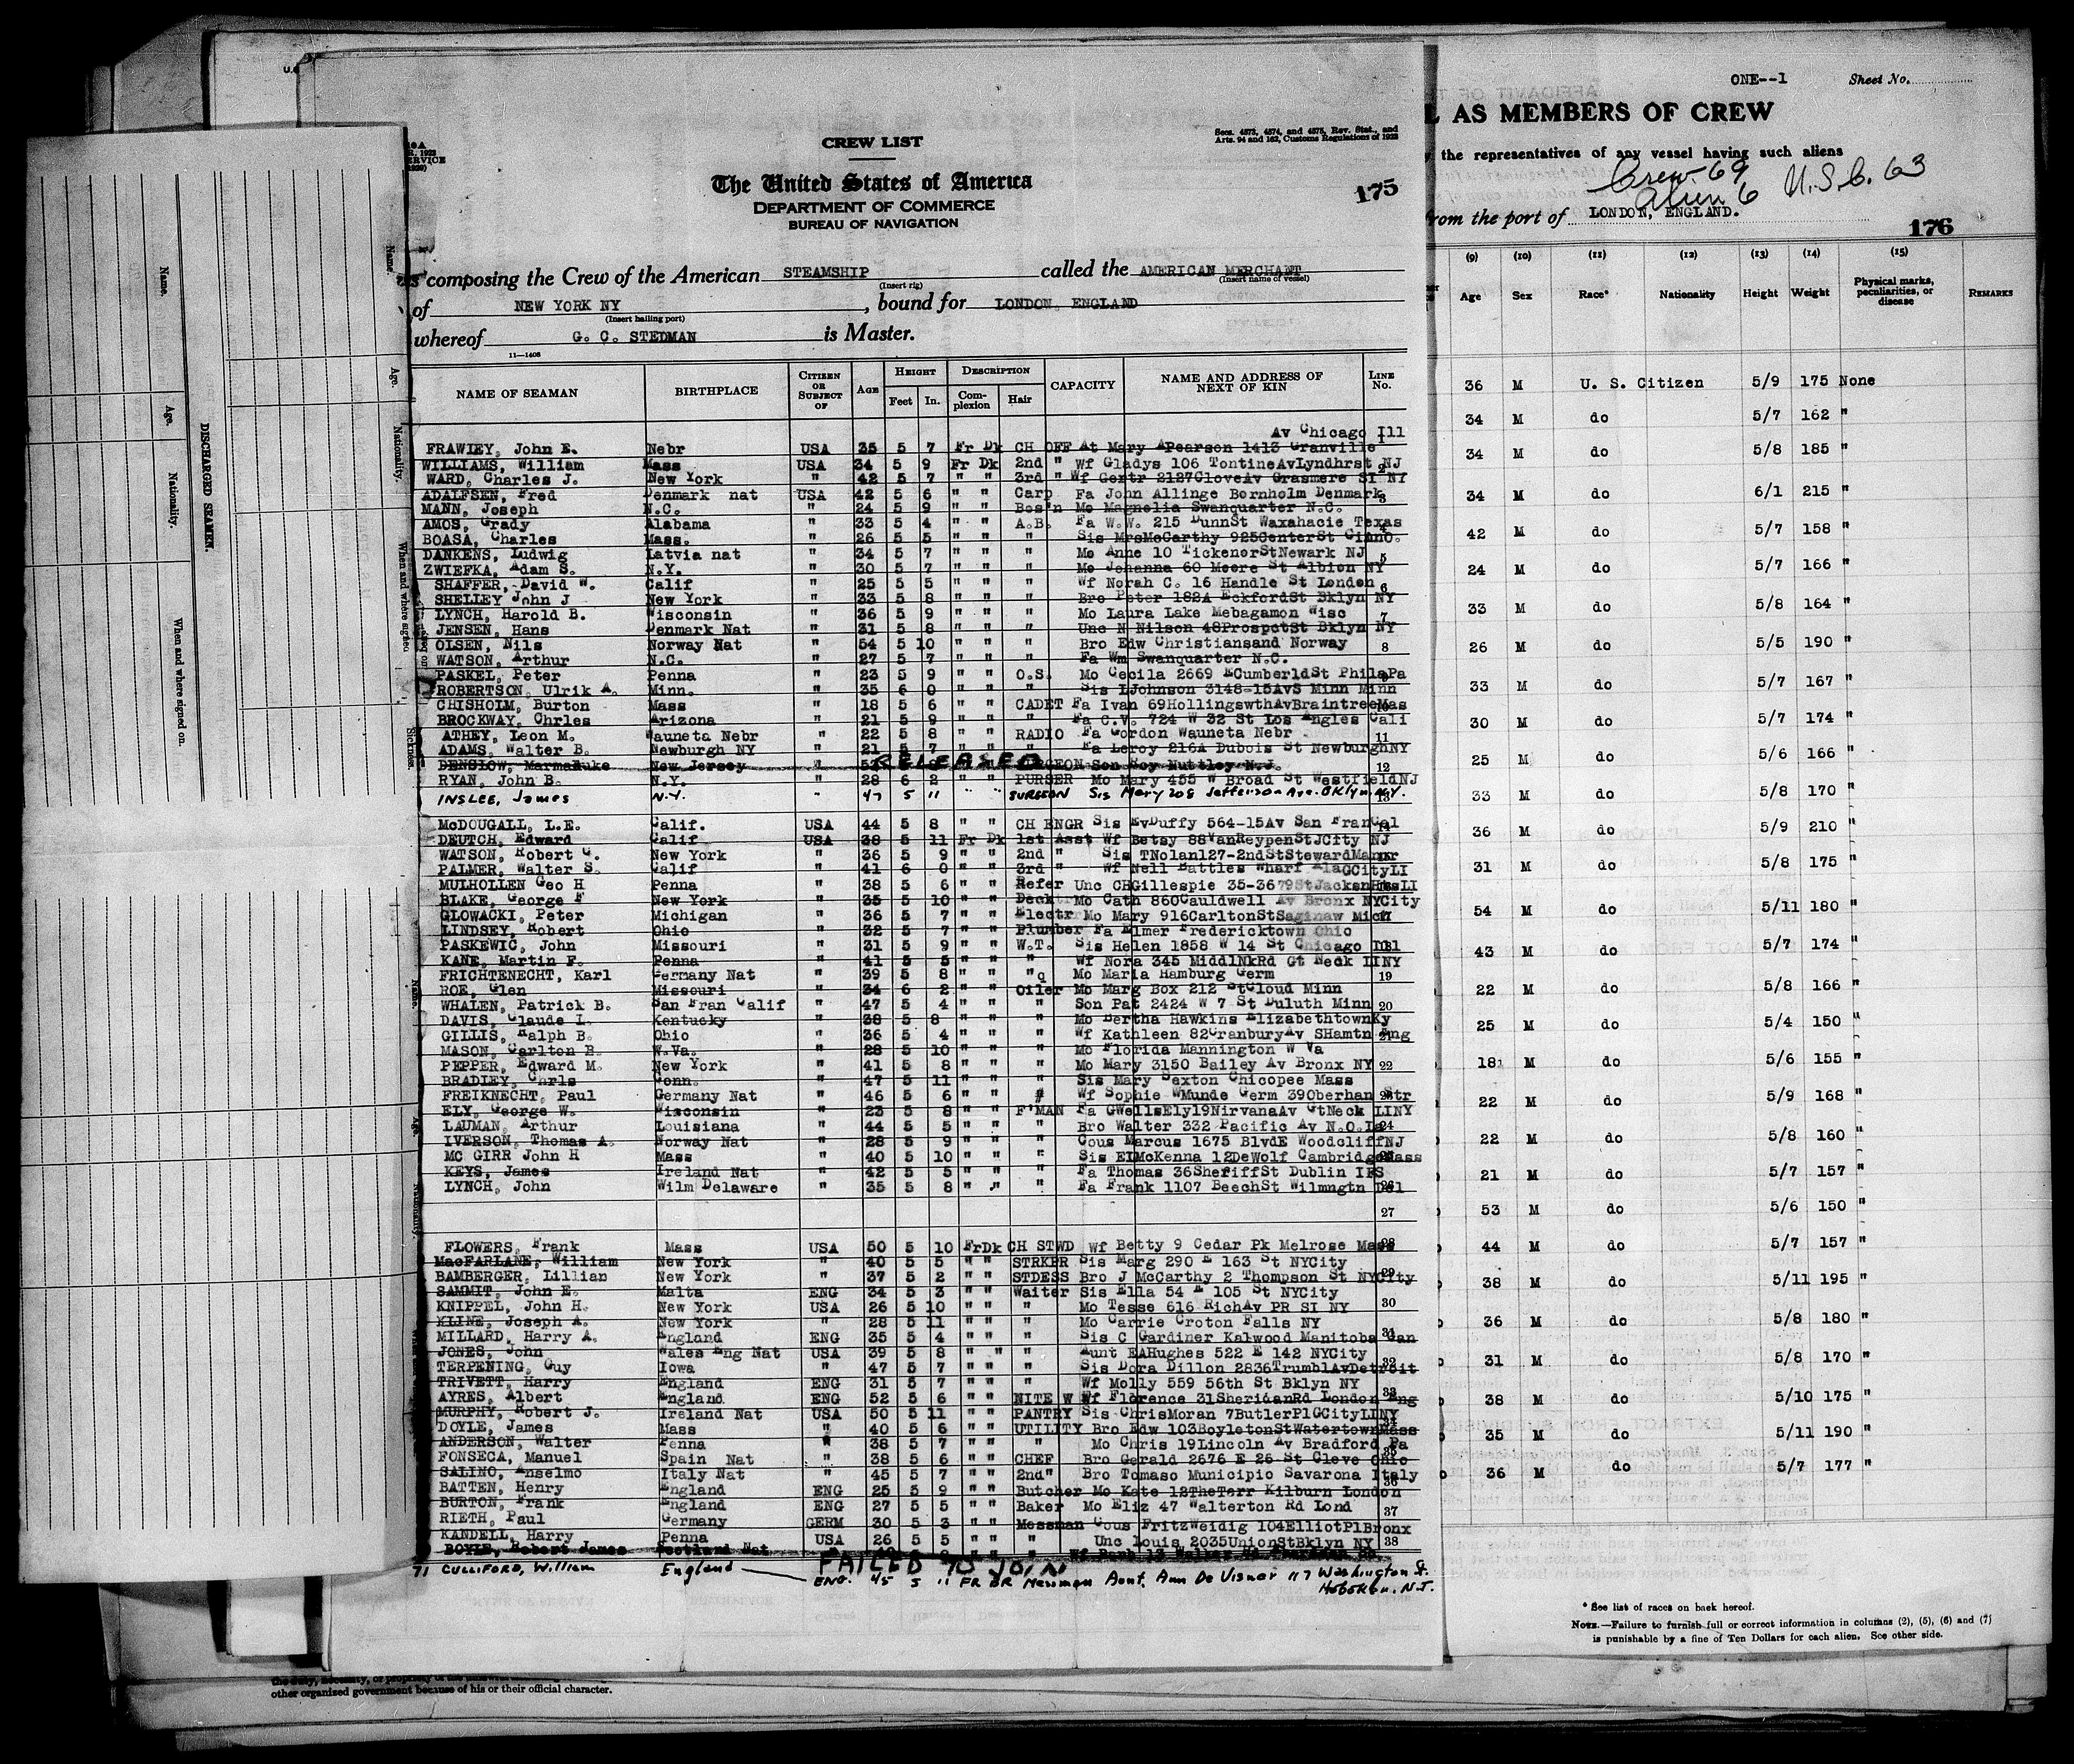 CREW LIST
Secs. 4573, 4574, and 4575, Rev. Stat., and
Arts. 94 and 162, Customs Regulations of 1923
The United States of America
175
DEPARTMENT OF COMMERCE
BUREAU OF NAVIGATION
composing the Crew of the American STEAMSHIP called the AMERICAN MERCHANT
(Insert rig) (Insert name of vessel)
of NEW YORK NY, bound for LONDON, ENGLAND
(Insert hailing port)
whereof G. C. STEDMAN is Master.
11—1408
NAME OF SEAMAN BIRTHPLACE CITIZEN OR SUBJECT OF AGE HEIGHT Feet In. DESCRIPTION Complexion Hair CAPACITY NAME AND ADDRESS OF NEXT OF KIN LINE No.
Av Chicago Ill
FRAWLEY, John E. Nebr USA 35 5 7 Fr Dk CH OFF At Mary APearson 1413 Granville
WILLIAMS, William Mass USA 34 5 9 Fr Dk 2nd " Wf Gladys 106 TontineAvLyndhrst NJ
WARD, Charles J. New York " 42 5 7 " " 3rd " Wf Gertr 2127CloveAv Grasmere SI NY
ADALFSEN, Fred Denmark nat USA 42 5 6 " " Carp Fa John Allinge Bornholm Denmark
MANN, Joseph N.C. " 24 5 9 " " Bos'n Mo Magnolia Swanquarter N.C.
AMOS, Grady Alabama " 33 5 4 " " A.B. Fa W.W. 215 DunnSt Waxahacie Texas
BOASA, Charles Mass. " 26 5 5 " " " Sis MrsMcCarthy 925CenterSt
DANKENS, Ludwig Latvia nat " 34 5 7 " " " Mo Anne 10 TickenorStNewark NJ
ZWIEFKA, Adam S. N.Y. " 30 5 7 " " " Mo Johanna 60 Moore St Albion NY
SHAFFER, David W. Calif " 25 5 5 " " " Wf Norah C. 16 Handle St London
SHELLEY John J New York " 33 5 8 " " " Bro Peter 182A EckfordSt Bklyn NY
LYNCH, Harold B. Wisconsin " 36 5 9 " " " Mo Laura Lake Mebagamon Wisc
JENSEN, Hans Denmark Nat " 31 5 8 " " " Unc N Nilson 48ProspctSt Bklyn NY
OLSEN, Nils Norway Nat " 54 5 10 " " " Bro Edw Christiansand Norway 8
WATSON, Arthur N.C. " 27 5 7 " " " Fa Wm Swanquarter N.C.
PASKEL, Peter Penna " 23 5 9 " " O.S. Mo Cecila 2669 ECumberldSt PhilaPa
ROBERTSON, Ulrik A. Minn. " 35 6 0 " " " Sis LJohnson 3148-15AvS Minn Minn
CHISHOLM, Burton Mass " 18 5 6 " " CADET Fa Ivan 69HollingswthAvBraintreeMas
BROCKWAY, Chrles Arizona " 21 5 9 " " " Fa C.V. 724 W 32 St Los Angles Cali
ATHEY, Leon M. Wauneta Nebr " 22 5 8 " " RADIO Fa Gordon Wauneta Nebr 11
ADAMS, Walter B. Newburgh NY " 21 5 7 " " " Fa Leroy 216A Dubois St NewburghNY
DENSLOW, Marmaduke New Jersey RELEASED SURGEON Son Roy Nuttley N.J. 12
RYAN, John B. N.Y. " 28 6 2 " " PURSER Mo Mary 455 W Broad St WestfieldNJ
INSLEE, James N.Y. " 47 5 11 " " SURGEON Sis Mary 208 Jefferson Ave. BKlyn N.Y.
McDOUGALL, L.E. Calif. USA 44 5 8 " " CH ENGR Sis EvDuffy 564-15Av San FranCal
DEUTCH, Edward Calif USA 38 5 11 Fr Dk 1st Asst Wf Betsy 88VanReypenStJCity NJ
WATSON, Robert G. New York " 36 5 9 " " 2nd " Sis TNolan127-2ndStStewardManor
PALMER, Walter S. Calif " 41 6 0 " " 3rd " Wf Nell Battles Wharf AlaGCityLI
MULHOLLEN Geo H Penna " 38 5 6 " " Refer Unc CHGillespie 35-3679StJacksnHtsLI
BLAKE, George F New York " 35 5 10 " " Deck Mo Cath 860Cauldwell Av Bronx NYCity
GLOWACKI, Peter Michigan " 36 5 7 " " Electr Mo Mary 916CarltonStSaginaw Mich
LINDSEY, Robert Ohio " 32 5 7 " " Plumber Fa Elmer Fredericktown Ohio
PASKEWIC, John Missouri " 31 5 9 " " W.T. Sis Helen 1858 W 14 St Chicago Ill
KANE, Martin F. Penna " 41 5 5 " " " Wf Nora 345 MiddlNkRd Gt Neck LINY
FRICHTENECHT, Karl Germany Nat " 39 5 8 " " " Mo Maria Hamburg Germ 19
ROE, Glen Missouri " 34 6 2 " " Oiler Mo Marg Box 212 StCloud Minn
WHALEN, Patrick B. San Fran Calif " 47 5 4 " " " Son Pat 2424 W 7 St Duluth Minn 20
DAVIS, Claude L. Kentucky " 38 5 8 " " " Mo Bertha Hawkins ElizabethtownKy
GILLIS, Ralph B. Ohio " 36 5 4 " " " Wf Kathleen 82CranburyAv SHamtn Eng
MASON, Carlton E. W.Va. " 28 5 10 " " " Mo Florida Mannington W Va
PEPPER, Edward M. New York " 41 5 8 " " " Mo Mary 3150 Bailey Av Bronx NY 22
BRADLEY, Chrls Conn. " 47 5 11 " " " Sis Mary Sexton Chicopee Mass
FREIKNECHT, Paul Germany Nat " 46 5 6 " " " Wf Sophie WMunde Germ 39Oberhan Str
ELY, George W. Wisconsin " 23 5 8 " " F'MAN Fa GWellsEly19NirvanaAv GtNeck LINY
LAUMAN, Arthur Louisiana " 44 5 5 " " " Bro Walter 332 Pacific Av N.O.La 24
IVERSON, Thomas A. Norway Nat " 28 5 9 " " " Cous Marcus 1675 BlvdE WoodcliffNJ
MC GIRR John H Mass " 40 5 10 " " " Sis ElMcKenna 12DeWolf CambridgeMass
KEYS, James Ireland Nat " 42 5 5 " " " Fa Thomas 36SheriffSt Dublin IFS
LYNCH, John Wilm Delaware " 35 5 8 " " " Fa Frank 1107 BeechSt Wilmngtn Del
27
FLOWERS, Frank Mass USA 50 5 10 FrDk CH STWD Wf Betty 9 Cedar Pk Melrose Mass
MacFARLANE, William New York " 40 5 5 " " STRKPR Sis Marg 290 E 163 St NYCity
BAMBERGER, Lillian New York " 37 5 2 " " STDESS Bro J McCarthy 2 Thompson St NYCity
SAMMIT, John E. Malta ENG 34 5 3 " " Waiter Sis Ella 54 E 105 St NYCity
KNIPPEL, John H. New York USA 26 5 10 " " " Mo Tesse 616 RichAv PR SI NY 30
KLINE, Joseph A. New York " 28 5 11 " " " Mo Carrie Croton Falls NY
MILLARD, Harry A. England ENG 35 5 4 " " " Sis C Gardiner Kalwood Manitoba Can
JONES, John Wales Eng Nat USA 39 5 8 " " " Aunt EAHughes 522 E 142 NYCity
TERPENING, Guy Iowa " 47 5 7 " " " Sis Dora Dillon 2836TrumblAvDetroit
TRIVETT, Harry England ENG 31 5 7 " " " Wf Molly 559 56th St Bklyn NY
AYRES, Albert England ENG 52 5 6 " " NITE W Wf Florence 31SheridanRd London Eng
MURPHY, Robert J. Ireland Nat USA 50 5 11 " " PANTRY Sis ChrisMoran 7ButlerPlGCityLINY
DOYLE, James Mass " 40 5 6 " " UTILITY Bro Edw 103BoyletonStWatertownMass
ANDERSON, Walter Penna " 38 5 7 " " " Mo Chris 19Lincoln Av Bradford Pa
FONSECA, Manuel Spain Nat " 38 5 6 " " CHEF Bro Gerald 2676 E 26 St Cleve Ohio
SALINO, Anselmo Italy Nat " 45 5 7 " " 2nd" Bro Tomaso Municipio Savarona Italy
BATTEN, Henry England ENG 25 5 9 " " Butcher Mo Kate 12TheTerr Kilburn London
BURTON, Frank England ENG 27 5 5 " " Baker Mo Eliz 47 Walterton Rd Lond 37
RIETH, Paul Germany GERM 30 5 3 " " Messman Cous FritzWeidig 104ElliotPlBronx
KANDELL, Harry Penna USA 26 5 5 " " " Unc Louis 2035UnionStBklyn NY 38
BOYLE, Robert James Scotland Nat FAILED TO JOIN
71 CULLIFORD, William England ENG. 45 5 11 FR BR Messman Aunt. Ann De Visner 117 Washington St.
Hoboken, N.J.
ONE--1 Sheet No.
AS MEMBERS OF CREW
the representatives of any vessel having such aliens
Crew 69
Alien 6 U.S.C. 63
from the port of LONDON, ENGLAND.
176
(9) (10) (11) (12) (13) (14) (15)
Age Sex Race* Nationality Height Weight Physical marks, peculiarities, or disease REMARKS
36 M U. S. Citizen 5/9 175 None
34 M do 5/7 162 "
34 M do 5/8 185 "
34 M do 6/1 215 "
42 M do 5/7 158 "
24 M do 5/7 166 "
33 M do 5/8 164 "
26 M do 5/5 190 "
33 M do 5/7 167 "
30 M do 5/7 174 "
25 M do 5/6 166 "
33 M do 5/8 170 "
36 M do 5/9 210 "
31 M do 5/8 175 "
54 M do 5/11 180 "
43 M do 5/7 174 "
22 M do 5/8 166 "
25 M do 5/4 150 "
18 M do 5/6 155 "
22 M do 5/9 168 "
22 M do 5/8 160 "
21 M do 5/7 157 "
53 M do 5/6 150 "
44 M do 5/7 157 "
38 M do 5/11 195 "
36 M do 5/8 180 "
31 M do 5/8 170 "
38 M do 5/10 175 "
35 M do 5/11 190 "
36 M do 5/7 177 "
* See list of races on back hereof.
NOTE.—Failure to furnish full or correct information in columns (2), (5), (6) and (7)
is punishable by a fine of Ten Dollars for each alien. See other side.
DISCHARGED SEAMEN.
Name. Age. Nationality. When and where signed on.
Name. Age. Nationality. When and where signed Sickness.
other organized government because of his or their official character.